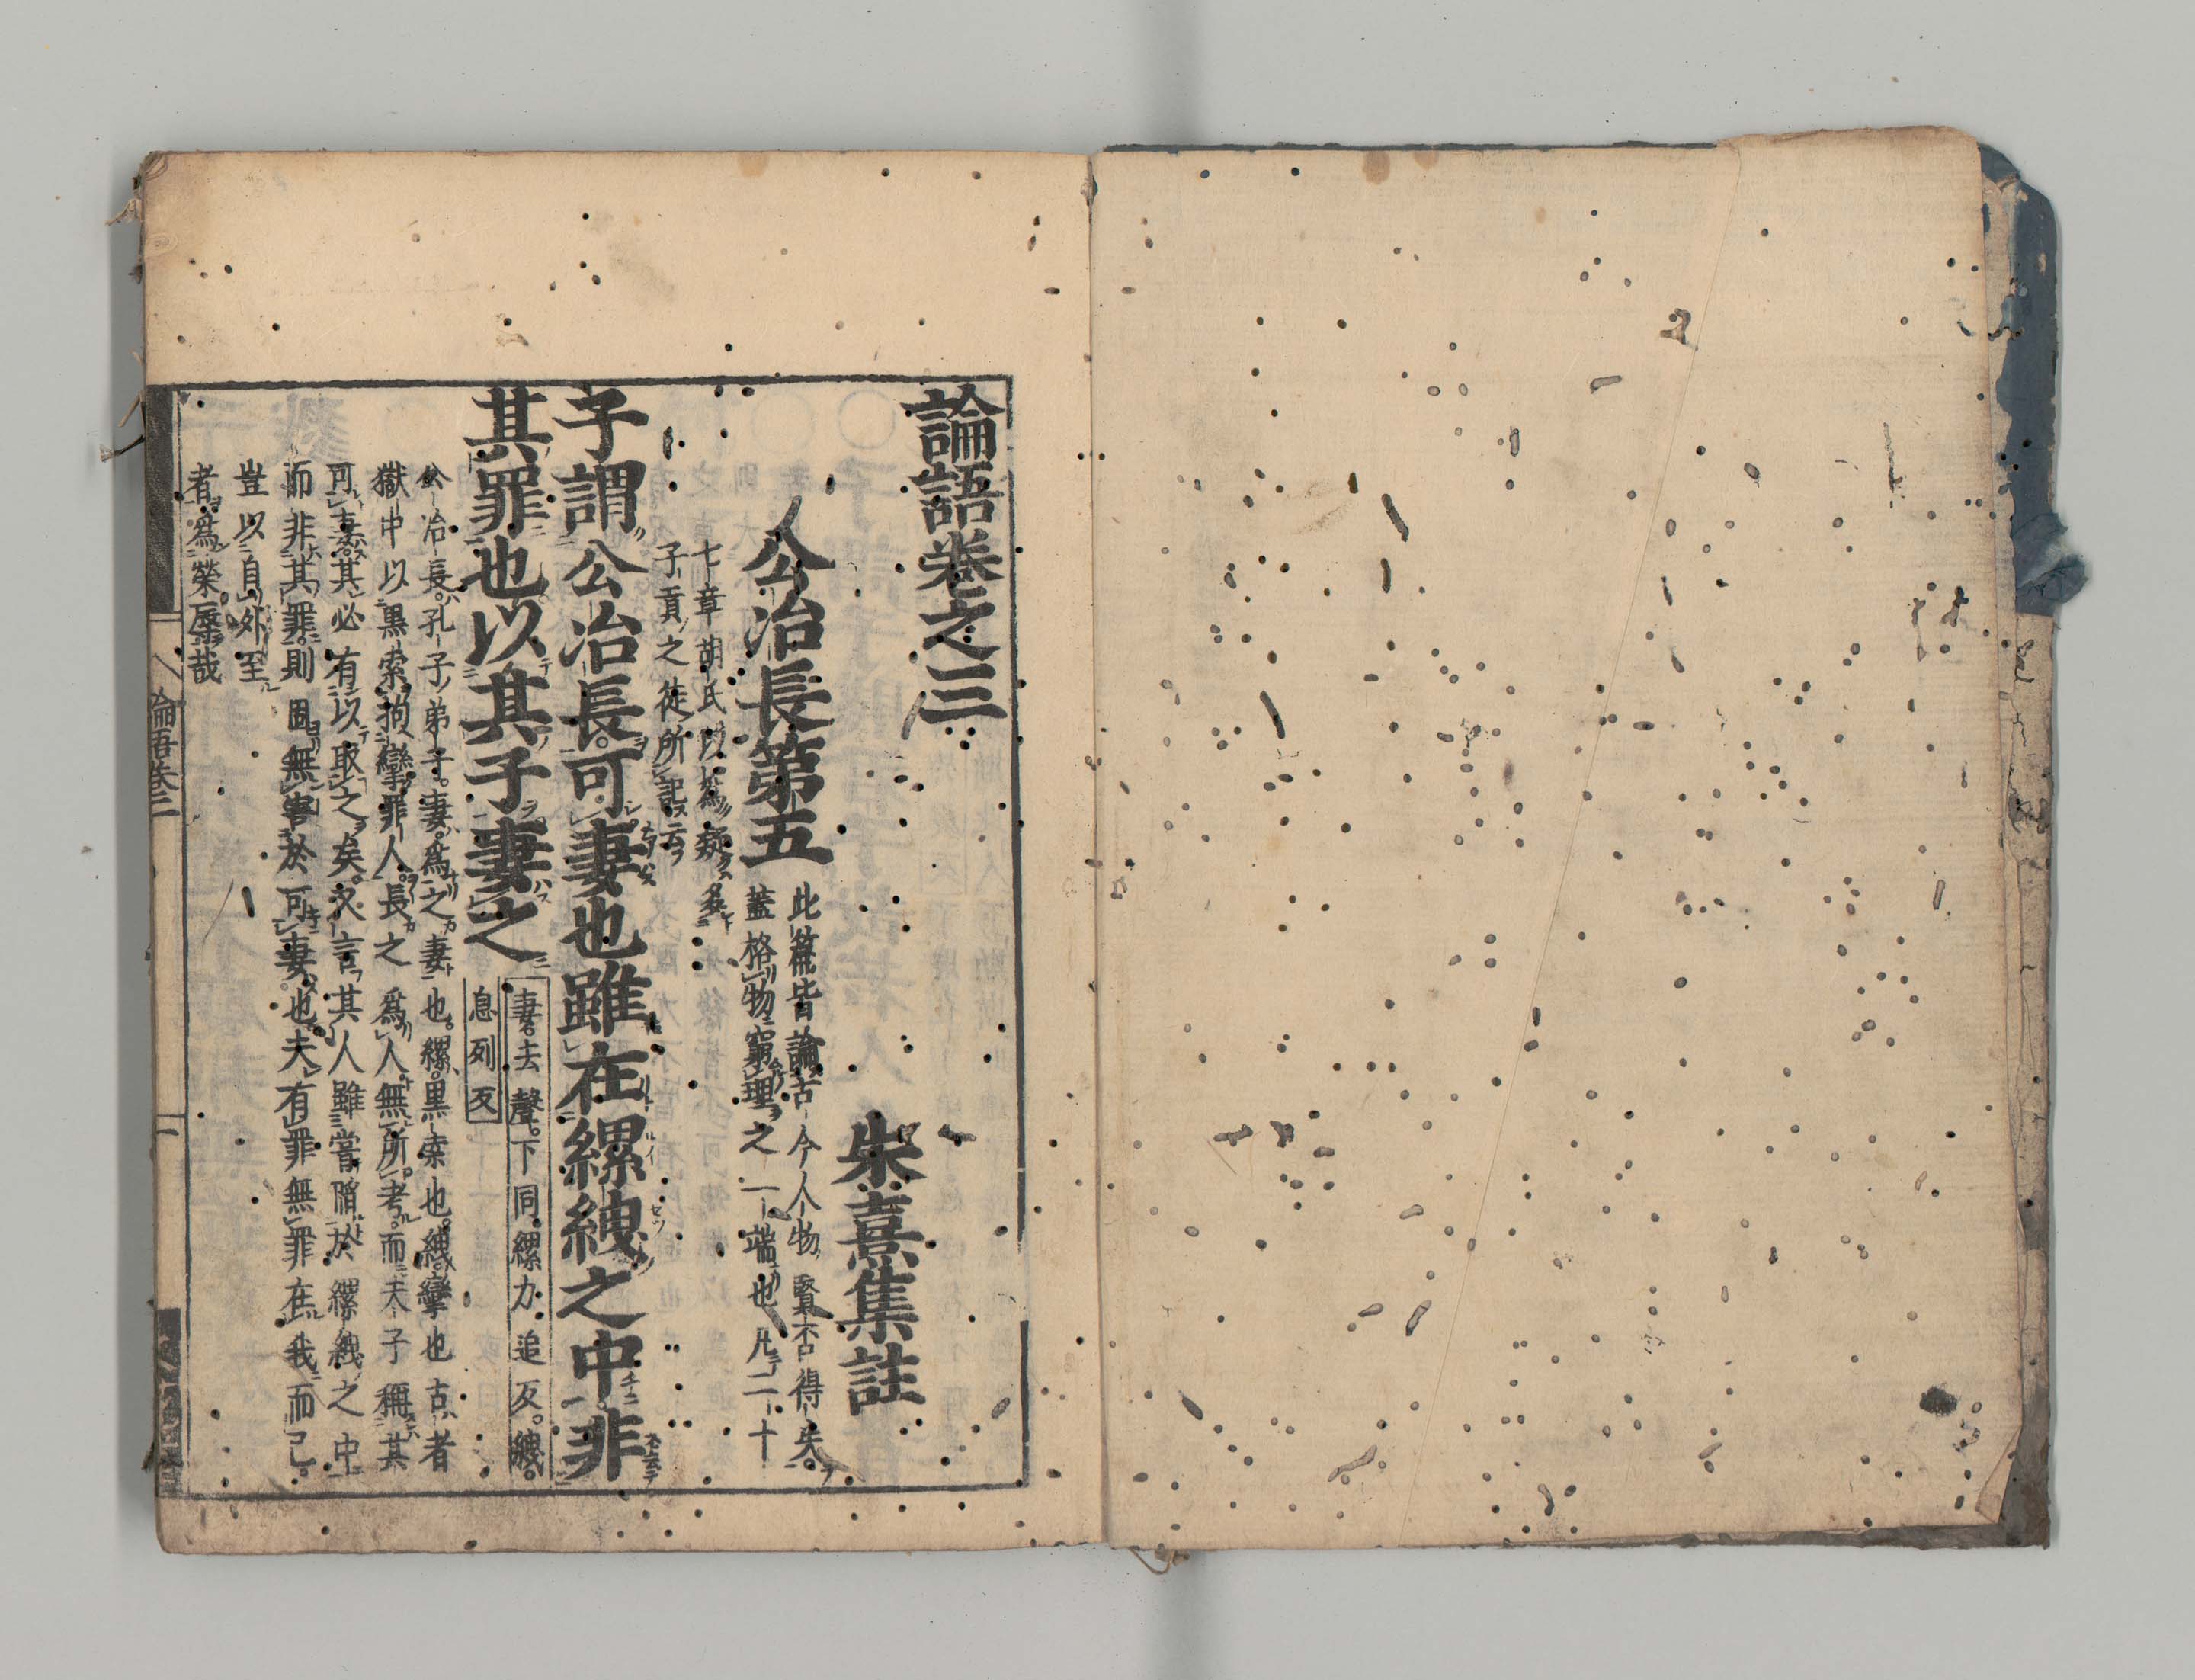 論語卷之三
朱熹集註
公冶長第五
此篇皆論古今人物賢否得失
蓋格物窮理之一端也凡二十
七章胡氏以爲疑多
子貢之徒所記云
子謂公冶長可妻也雖在縲絏之中非
其罪也以其子妻之
妻去聲下同縲力追反絏
息列反
公冶長孔子弟子妻爲之妻也縲黒索也絏攣也古者
獄中以黒索拘攣罪人長之爲人無所考而夫子稱其
可妻其必有以取之矣又言其人雖嘗陷於縲絏之中
而非其罪則固無害於可妻也夫有罪無罪在我而已
豈以自外至
者爲榮辱哉
論語卷三
一